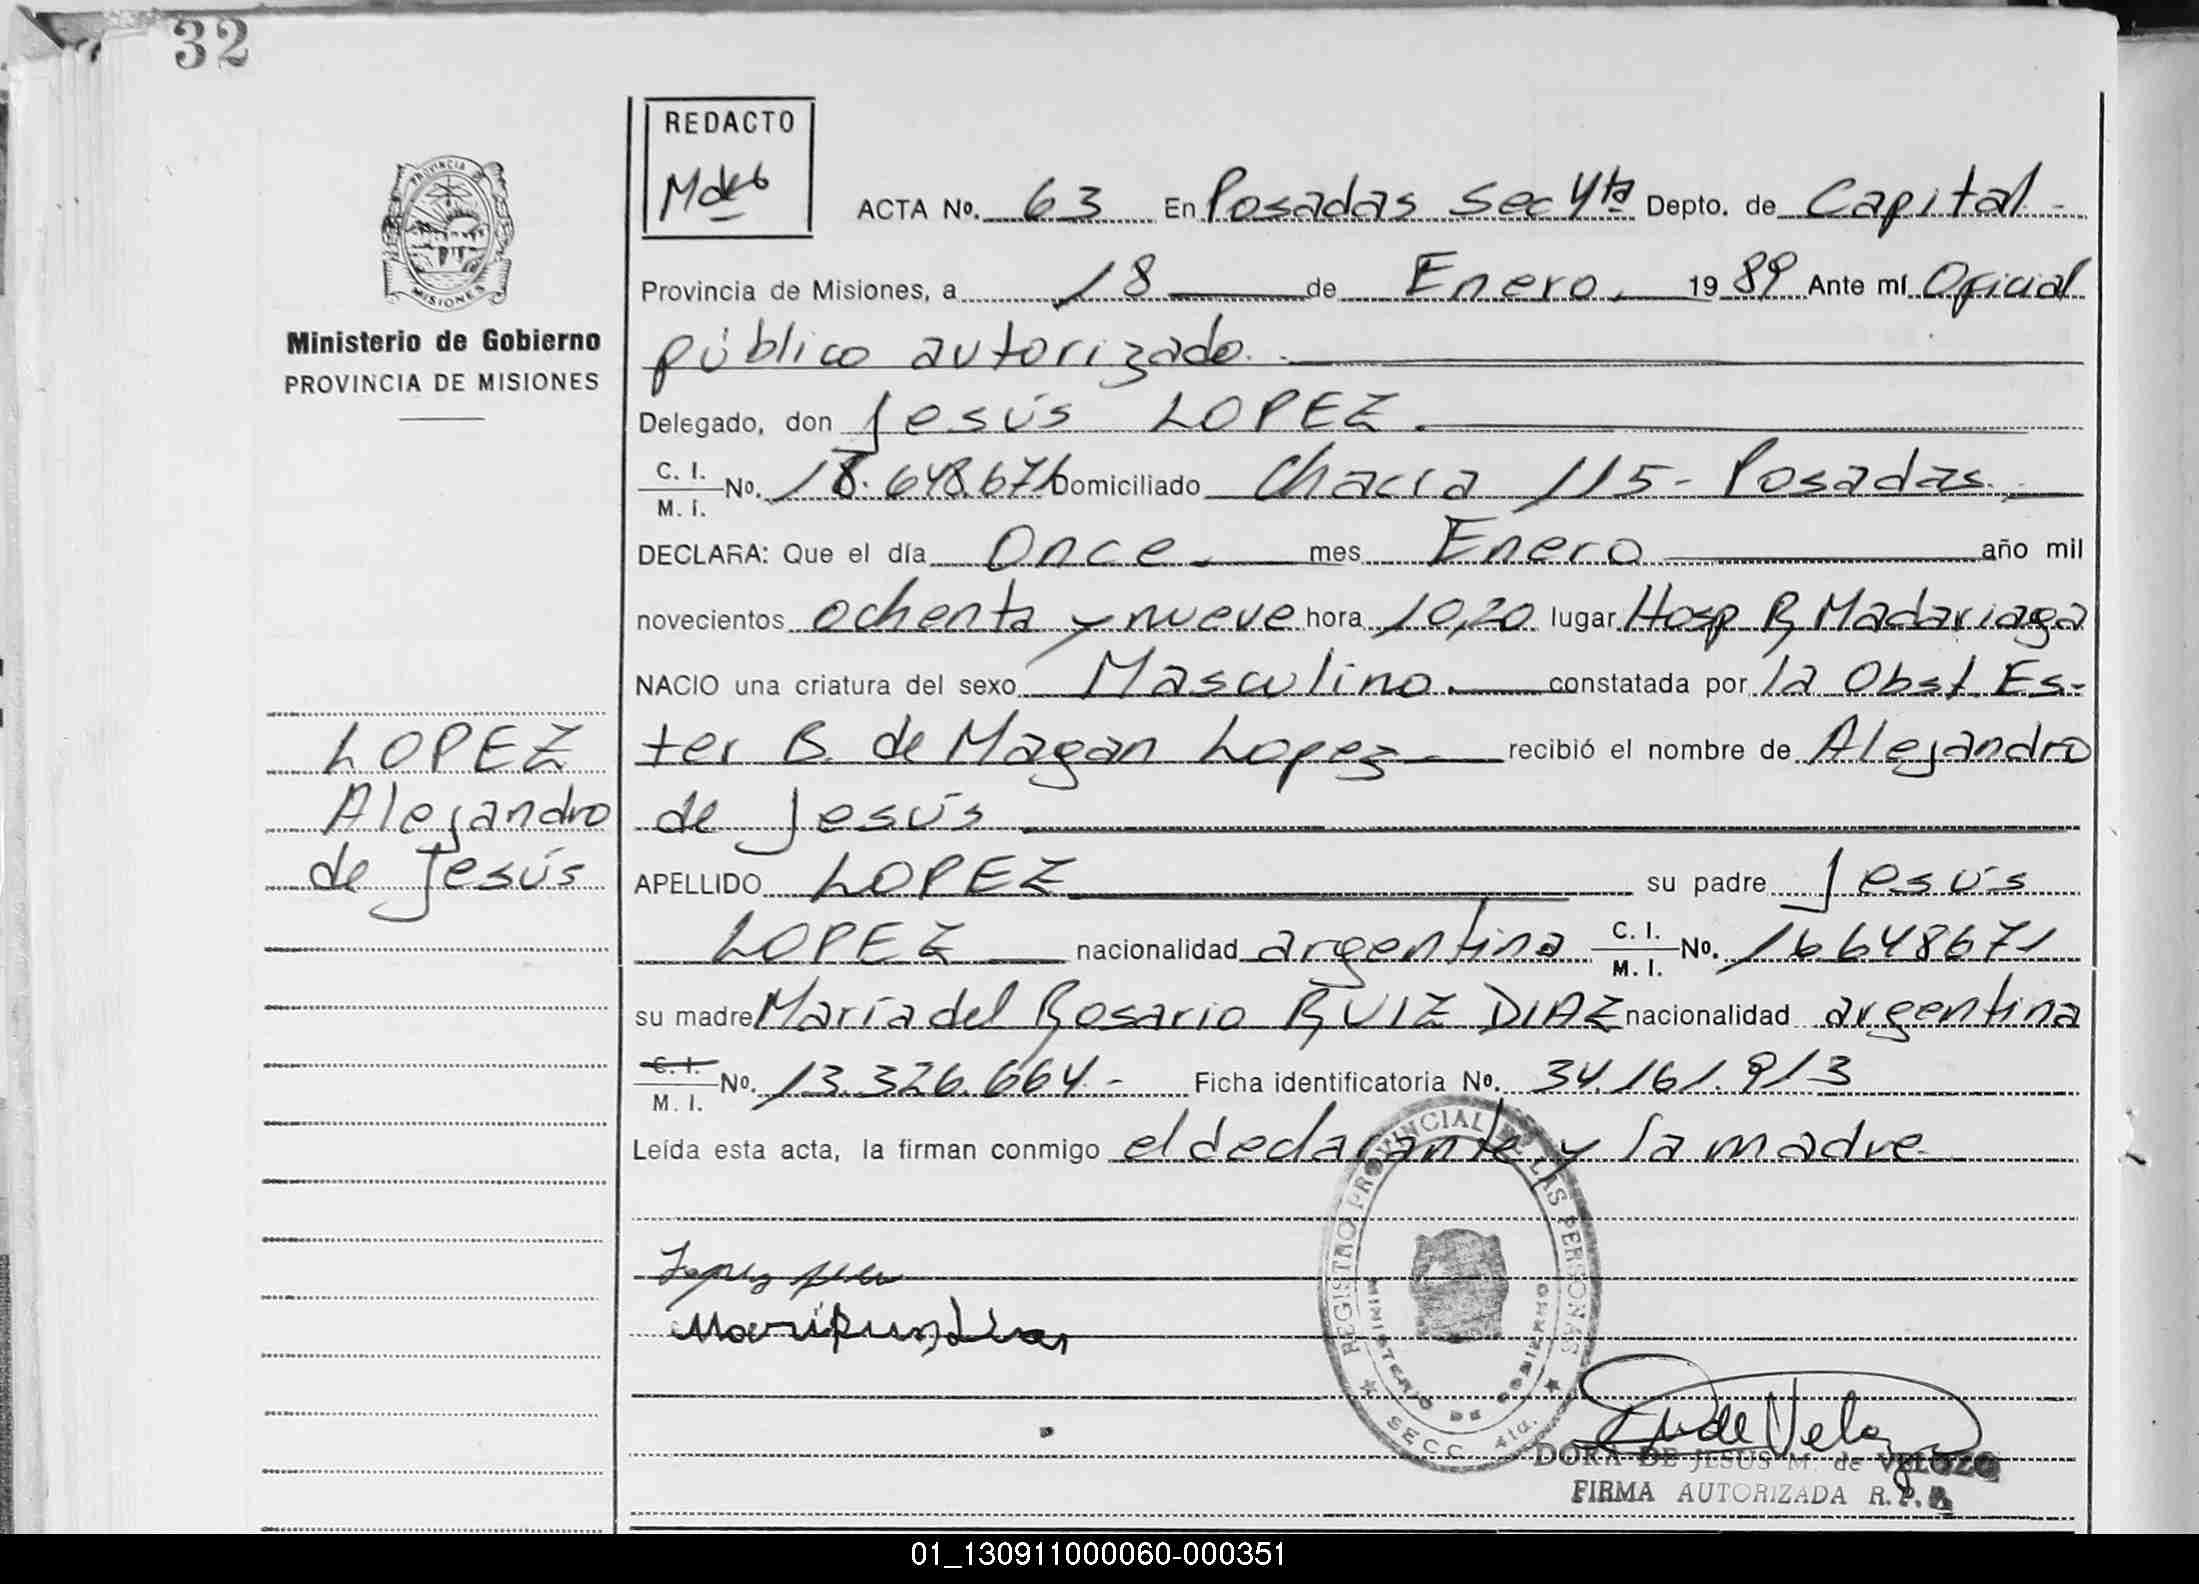 32
REDACTO
ACTA Nº. 63 En Posadas Sec 4ta Depto. de Capital -
PROVINCIA DE
MISIONES
Provincia de Misiones, a 18 de Enero. 1989 Ante mí Oficial
Ministerio de Gobierno
PROVINCIA DE MISIONES
público autorizado.
Delegado, don Jesús LOPEZ.
C. I.
M. I. Nº. 18.648.671 Domiciliado Chacra 115 - Posadas.
DECLARA: Que el día Once. mes Enero año mil
novecientos ochenta y nueve hora 10,20 lugar Hosp R, Madariaga
NACIO una criatura del sexo Masculino. constatada por la Obst. Es-
LOPEZ
ter B. de Magan Lopez recibió el nombre de Alejandro
Alejandro
de Jesús
de Jesús
APELLIDO LOPEZ su padre Jesús
LOPEZ nacionalidad argentina C. I.
M. I. Nº. 16648671
su madre María del Rosario RUIZ DIAZ nacionalidad argentina
C. I.
M. I. Nº. 13.326.664.- Ficha identificatoria Nº. 34.161.913
Leída esta acta, la firman conmigo el declarante y la madre
REGISTRO PROVINCIAL DE LAS PERSONAS
MINISTERIO DE GOBIERNO
SECC. 4ta.
DORA DE JESUS M. de VELOZO
FIRMA AUTORIZADA R. P.
01_130911000060-000351